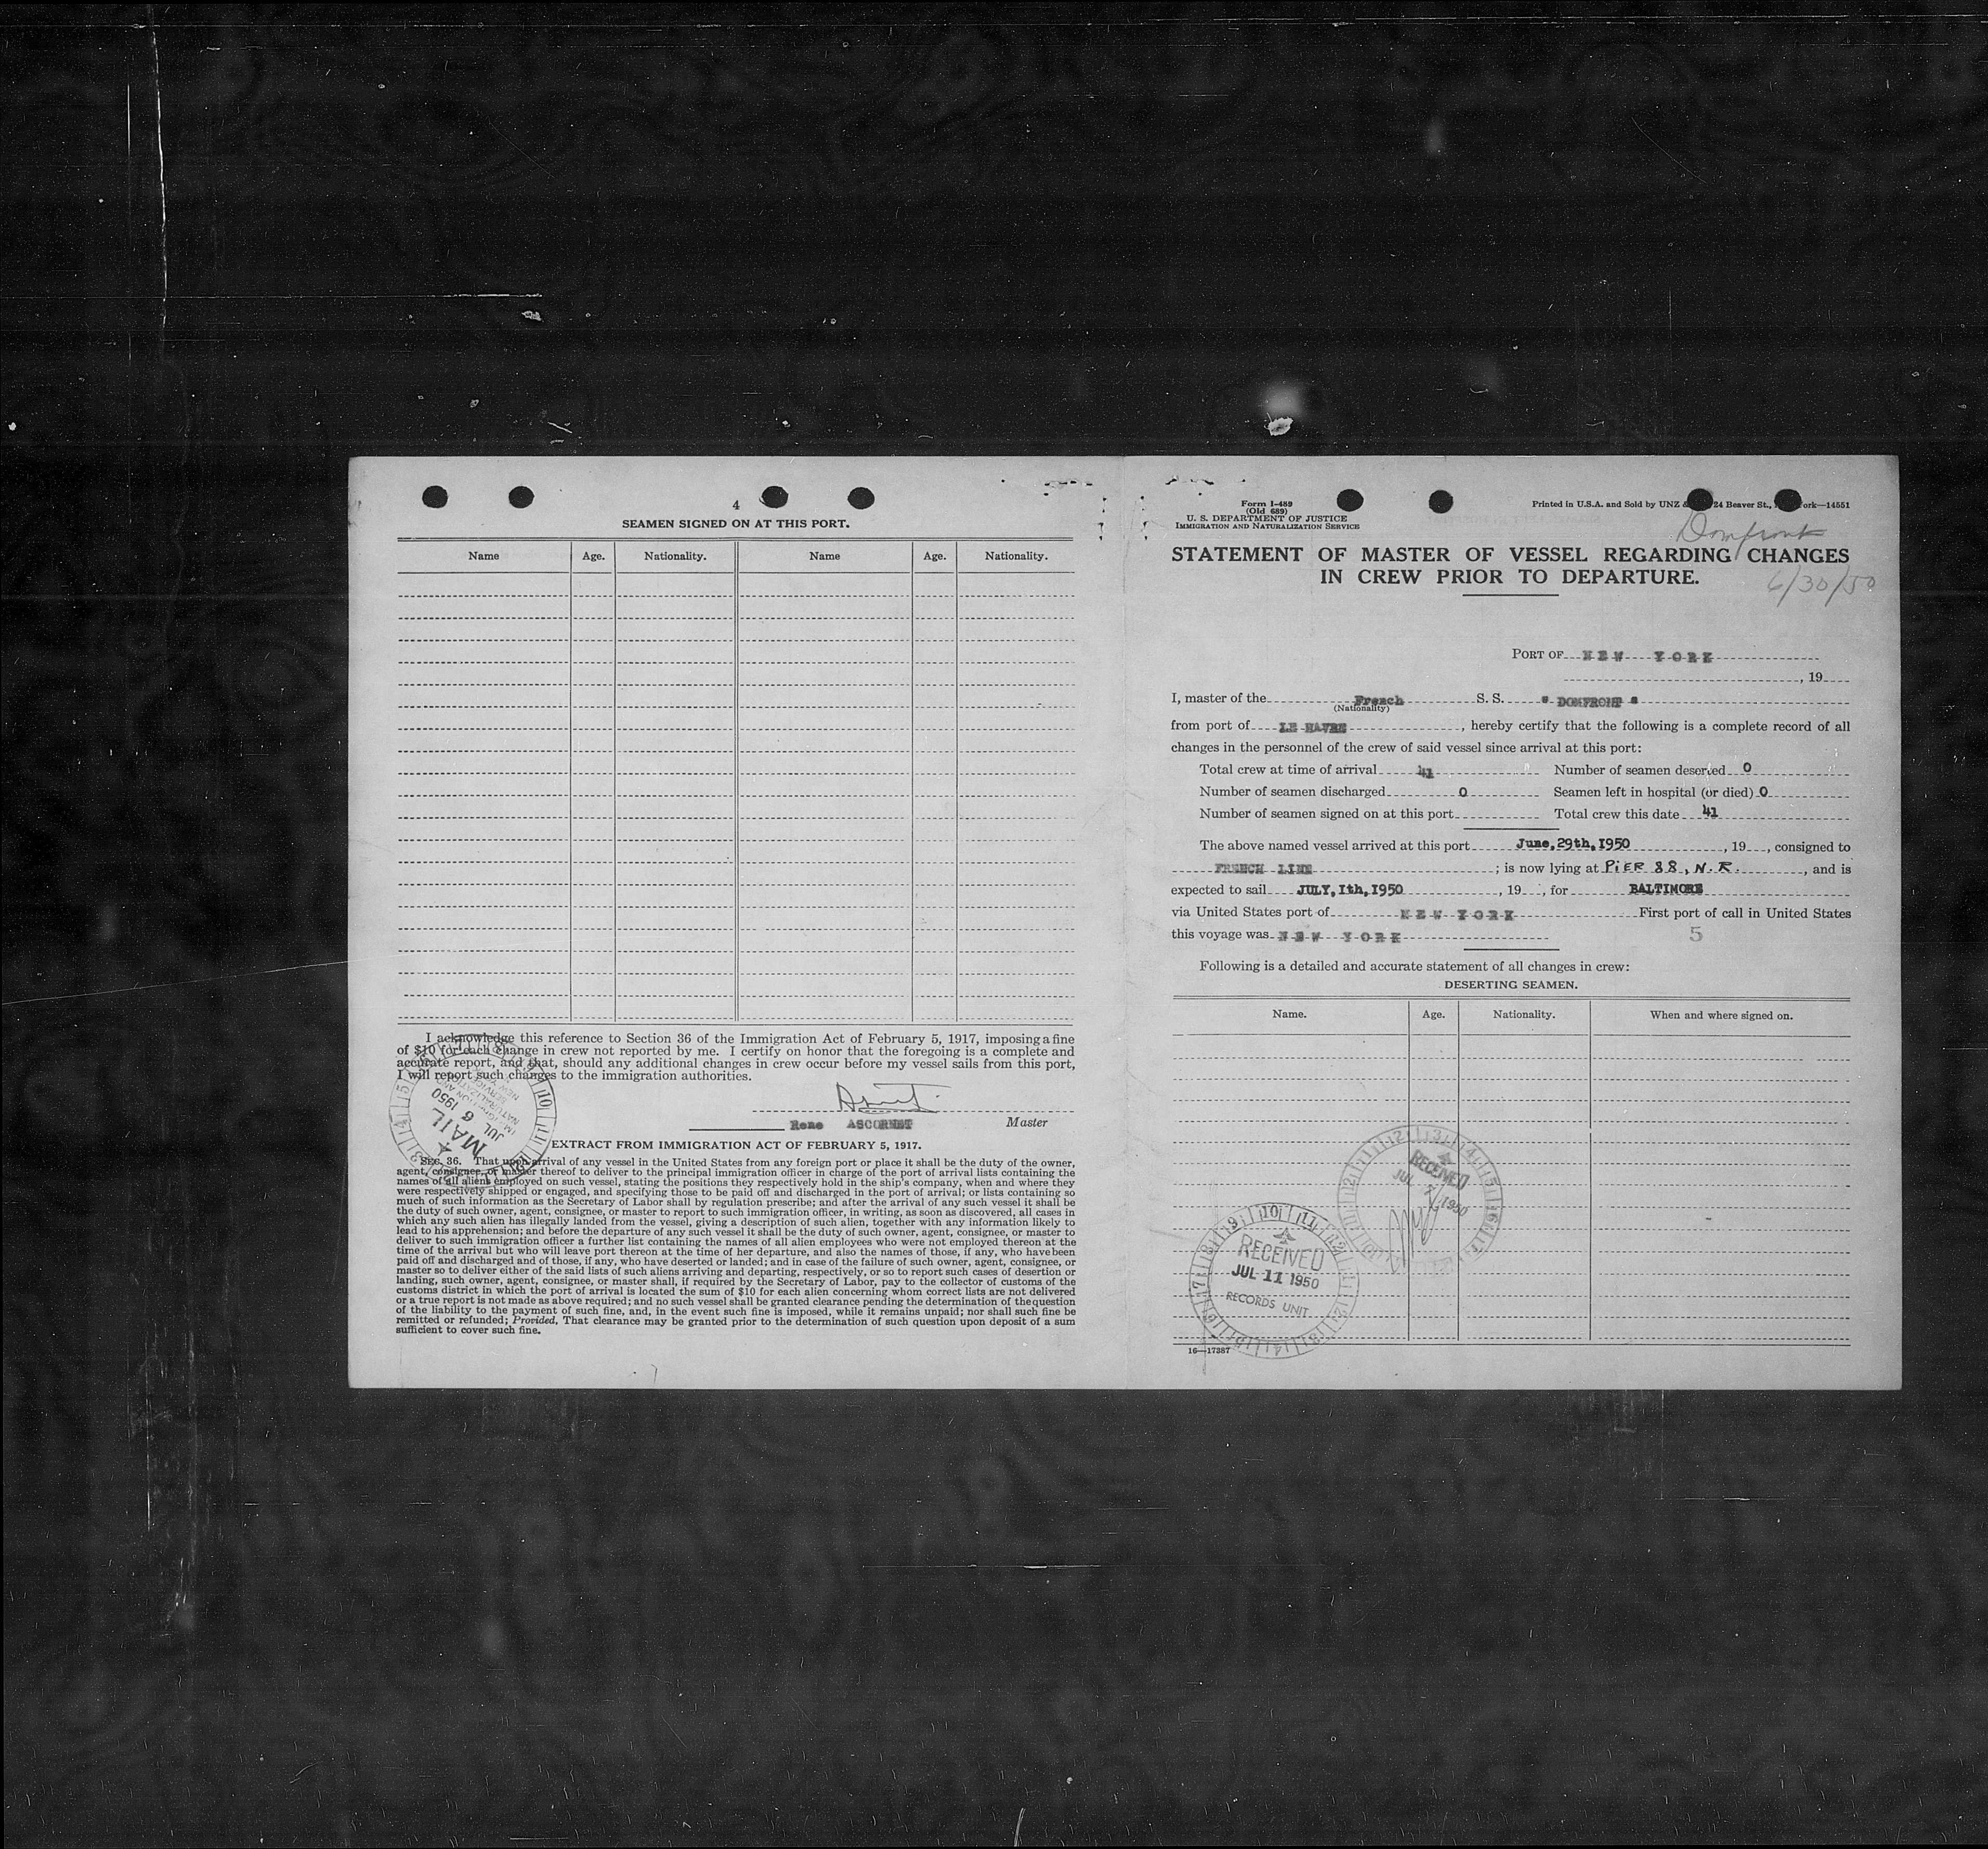 4
SEAMEN SIGNED ON AT THIS PORT.
Name Age. Nationality. Name Age. Nationality.
I acknowledge this reference to Section 36 of the Immigration Act of February 5, 1917, imposing a fine
of $10 for each change in crew not reported by me. I certify on honor that the foregoing is a complete and
accurate report, and that, should any additional changes in crew occur before my vessel sails from this port,
I will report such changes to the immigration authorities.
Rene ASCORNET Master
MAIL
JUL 6 1950
EXTRACT FROM IMMIGRATION ACT OF FEBRUARY 5, 1917.
SEC. 36. That upon arrival of any vessel in the United States from any foreign port or place it shall be the duty of the owner,
agent, consignee, or master thereof to deliver to the principal immigration officer in charge of the port of arrival lists containing the
names of all aliens employed on such vessel, stating the positions they respectively hold in the ship's company, when and where they
were respectively shipped or engaged, and specifying those to be paid off and discharged in the port of arrival; or lists containing so
much of such information as the Secretary of Labor shall by regulation prescribe; and after the arrival of any such vessel it shall be
the duty of such owner, agent, consignee, or master to report to such immigration officer, in writing, as soon as discovered, all cases in
which any such alien has illegally landed from the vessel, giving a description of such alien, together with any information likely to
lead to his apprehension; and before the departure of any such vessel it shall be the duty of such owner, agent, consignee, or master to
deliver to such immigration officer a further list containing the names of all alien employees who were not employed thereon at the
time of the arrival but who will leave port thereon at the time of her departure, and also the names of those, if any, who have been
paid off and discharged and of those, if any, who have deserted or landed; and in case of the failure of such owner, agent, consignee, or
master so to deliver either of the said lists of such aliens arriving and departing, respectively, or so to report such cases of desertion or
landing, such owner, agent, consignee, or master shall, if required by the Secretary of Labor, pay to the collector of customs of the
customs district in which the port of arrival is located the sum of $10 for each alien concerning whom correct lists are not delivered
or a true report is not made as above required; and no such vessel shall be granted clearance pending the determination of the question
of the liability to the payment of such fine, and, in the event such fine is imposed, while it remains unpaid; nor shall such fine be
remitted or refunded; Provided, That clearance may be granted prior to the determination of such question upon deposit of a sum
sufficient to cover such fine.
Form I-489
(Old 689)
U. S. DEPARTMENT OF JUSTICE
IMMIGRATION AND NATURALIZATION SERVICE
Printed in U.S.A. and Sold by UNZ & 24 Beaver St., ork—14551
Domfront
STATEMENT OF MASTER OF VESSEL REGARDING CHANGES
IN CREW PRIOR TO DEPARTURE.
6/30/50
PORT OF NEW YORK
, 19
I, master of the French S. S. " DOMFRONT "
(Nationality)
from port of LE HAVRE , hereby certify that the following is a complete record of all
changes in the personnel of the crew of said vessel since arrival at this port:
Total crew at time of arrival 41 Number of seamen deserted 0
Number of seamen discharged 0 Seamen left in hospital (or died) 0
Number of seamen signed on at this port Total crew this date 41
The above named vessel arrived at this port June,29th,1950 , 19 , consigned to
FRENCH LINE ; is now lying at PIER 88, N.R. , and is
expected to sail JULY,1th,1950 , 19 , for BALTIMORE
via United States port of NEW YORK First port of call in United States
this voyage was NEW YORK
5
Following is a detailed and accurate statement of all changes in crew:
DESERTING SEAMEN.
Name. Age. Nationality. When and where signed on.
RECEIVED
JUL 1950
RECEIVED
JUL 11 1950
RECORDS UNIT
16—17387